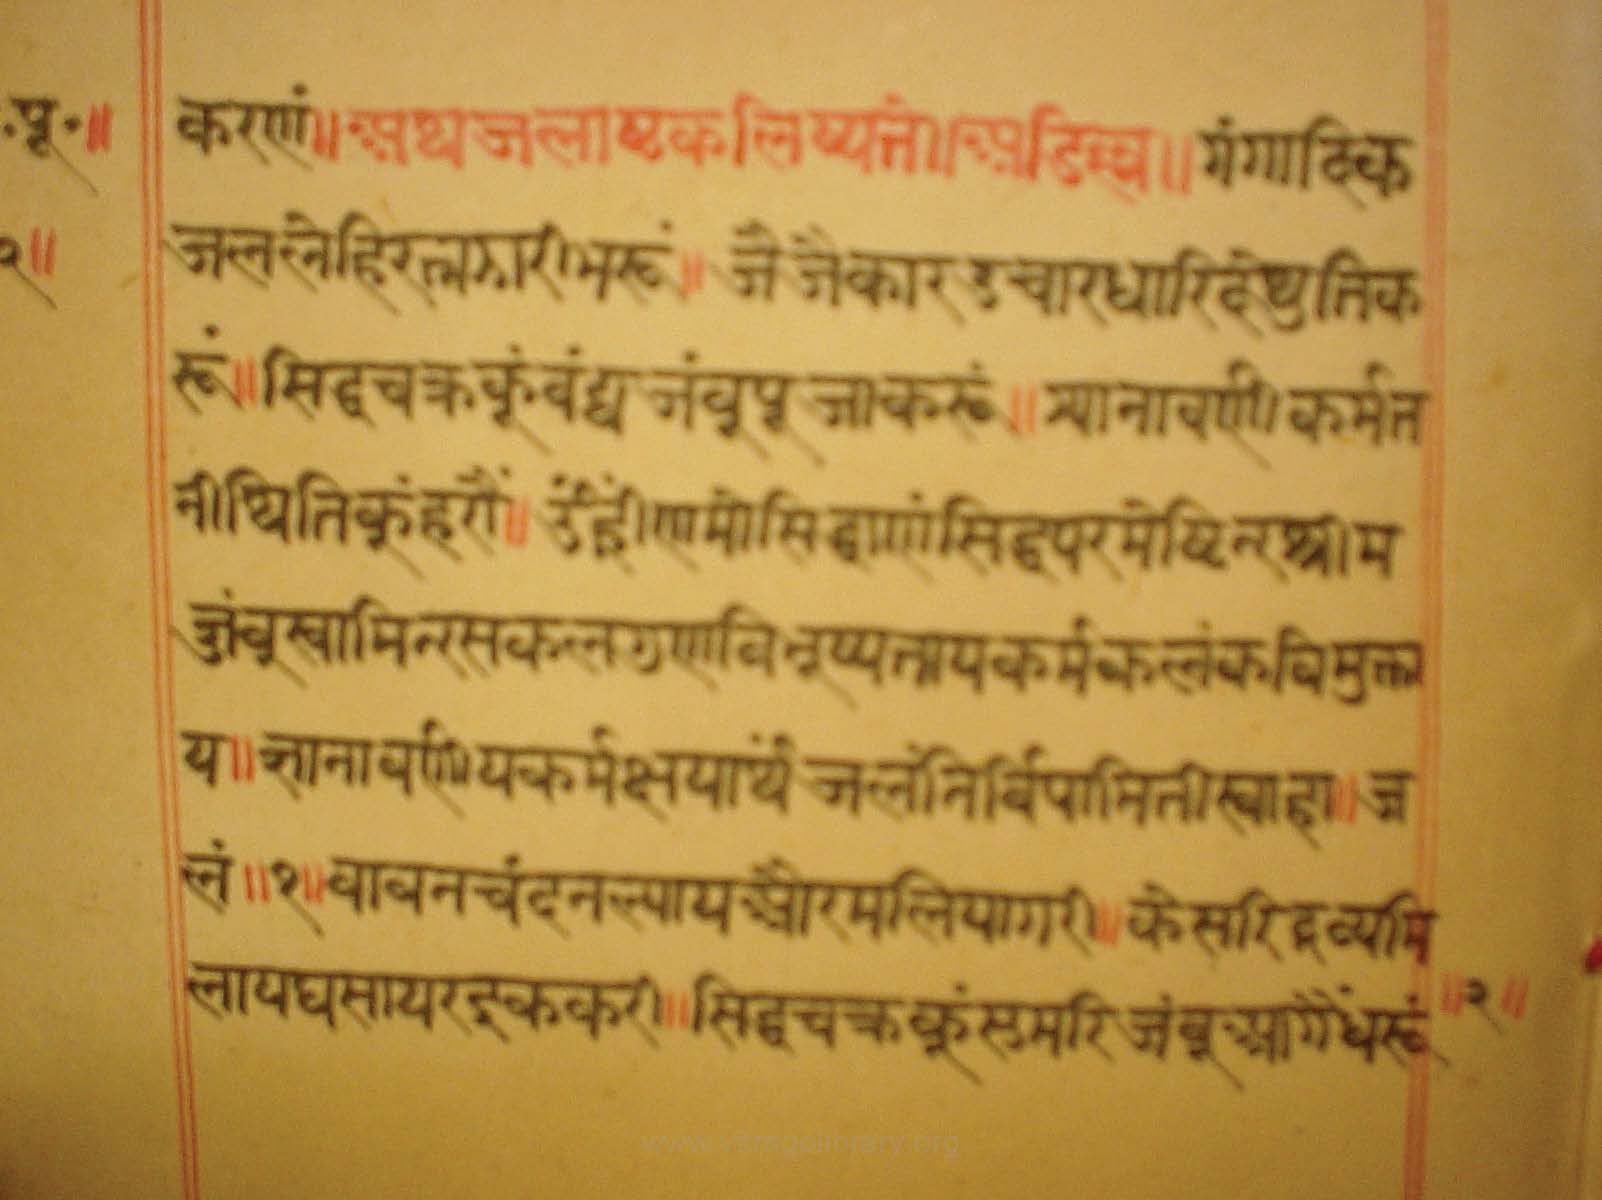 .पू.॥
करणं॥अथजलाष्टकलिष्यते॥अडिल्ल॥गंगादिक
२॥
जललेहिरत्नझारीभरूं॥ जैजैकारउचारधारिदेथुतिक
रूं॥सिद्धचक्रकूंवंद्य जंबूपूजाकरूं॥ ग्यानावर्णीकर्मत
नीथितिकूंहरौं॥ उँह्रींणमोसिद्धाणंसिद्धपरमेष्टिन्श्रीम
जंबूस्वामिन्सकलगुणविभूष्यतायकर्मकलंकविमुक्ता
य॥ज्ञानावर्णीयकर्मक्षयार्थं जलंनिर्विपामितीस्वाहा॥ज
लं॥१॥वावनचंदनल्यायऔरमलियागरी॥केसरिद्रव्यमि
लायघसायरइककरी॥सिद्धचक्रकूंसुमरि जंबूआगैंधरूं
॥२॥
www.vitragvani.org